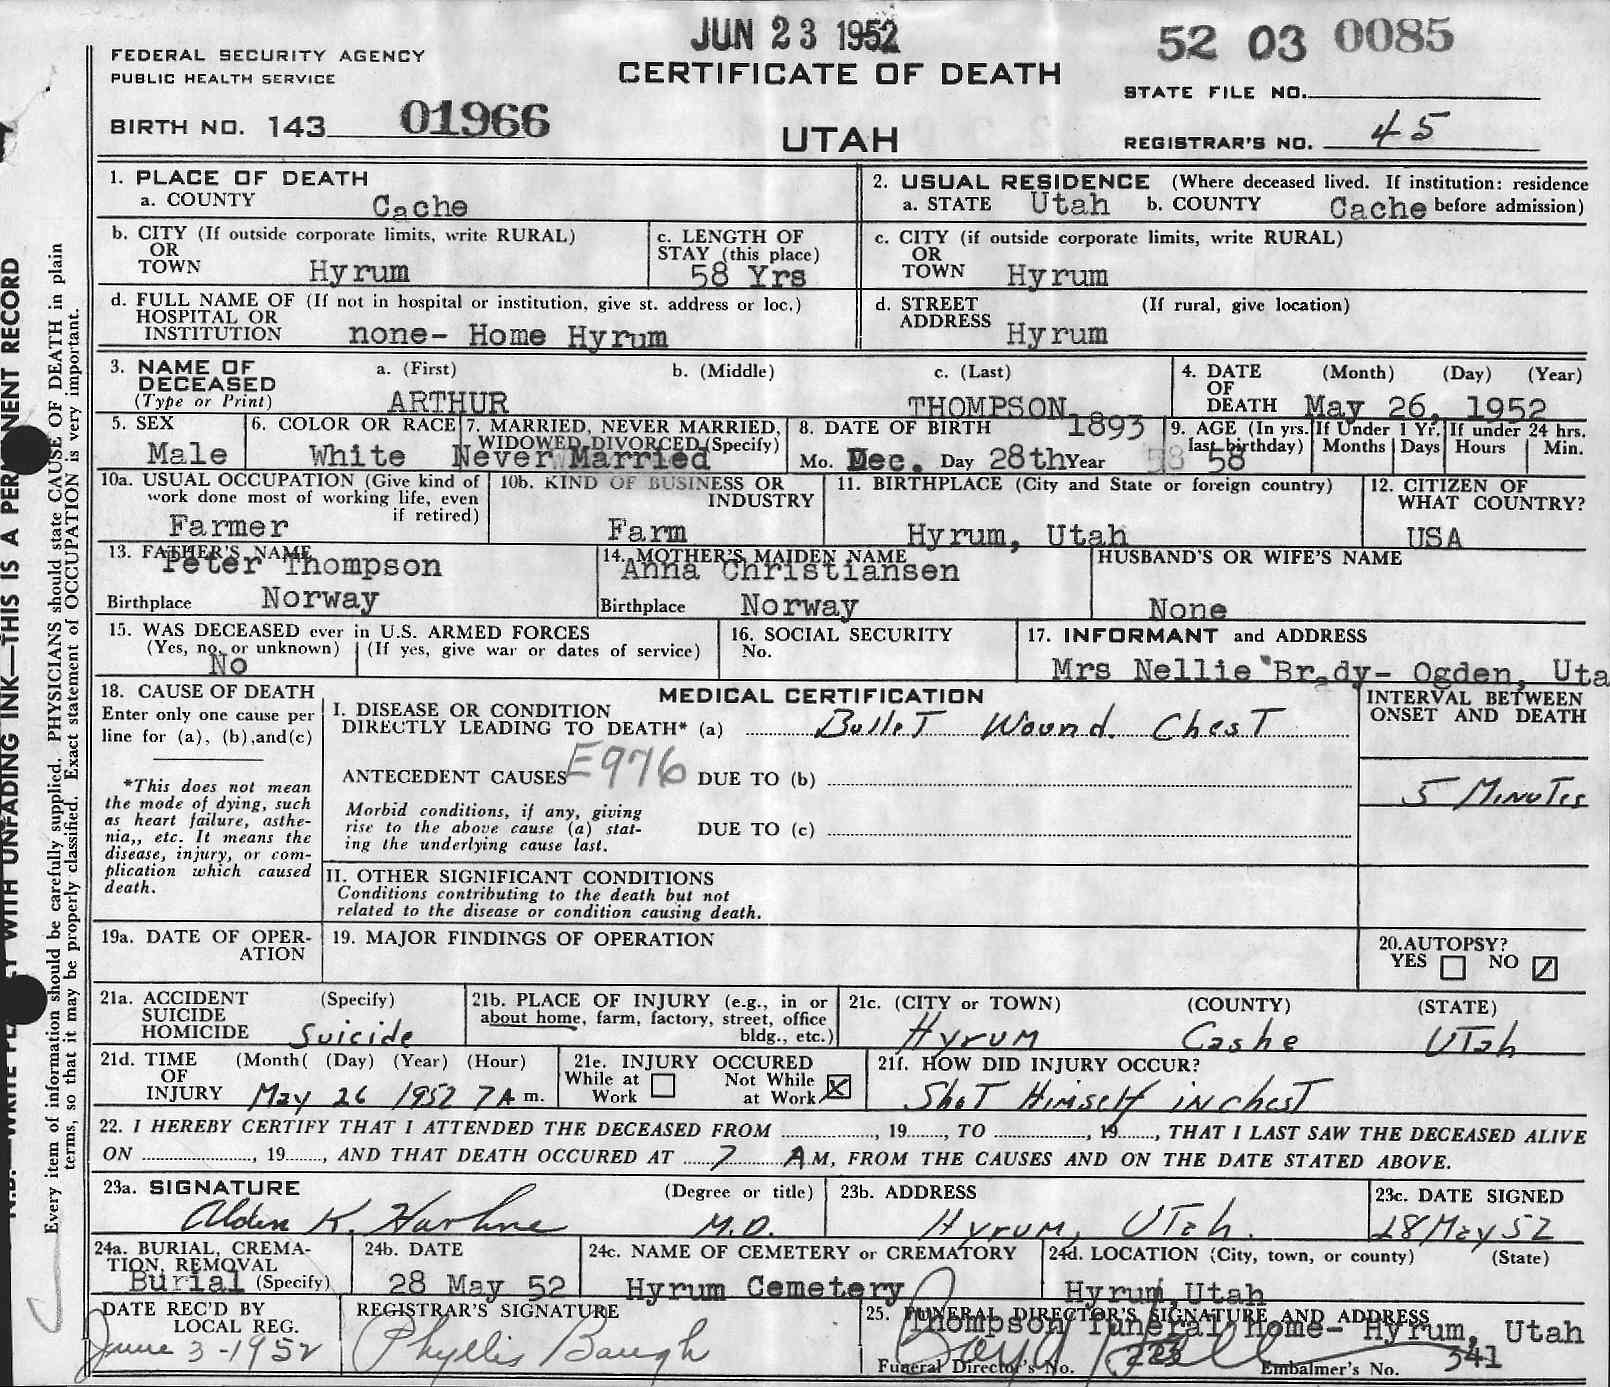 JUN 23 1952
52 03 0085
FEDERAL SECURITY AGENCY
PUBLIC HEALTH SERVICE
CERTIFICATE OF DEATH
STATE FILE NO.
BIRTH NO. 143 01966
UTAH
REGISTRAR'S NO. 45
1. PLACE OF DEATH
a. COUNTY Cache
2. USUAL RESIDENCE (Where deceased lived. If institution: residence
a. STATE Utah b. COUNTY Cache before admission)
b. CITY (If outside corporate limits, write RURAL)
OR
TOWN Hyrum
c. LENGTH OF
STAY (this place)
58 Yrs
c. CITY (if outside corporate limits, write RURAL)
OR
TOWN Hyrum
d. FULL NAME OF (If not in hospital or institution, give st. address or loc.)
HOSPITAL OR
INSTITUTION none- Home Hyrum
d. STREET (If rural, give location)
ADDRESS Hyrum
3. NAME OF
DECEASED
(Type or Print)
a. (First) b. (Middle) c. (Last)
ARTHUR THOMPSON
4. DATE (Month) (Day) (Year)
OF
DEATH May 26, 1952
5. SEX
Male
6. COLOR OR RACE
White
7. MARRIED, NEVER MARRIED,
WIDOWED, DIVORCED (Specify)
Never Married
8. DATE OF BIRTH 1893
Mo. Dec. Day 28th Year
9. AGE (In yrs.
last birthday)
58
If Under 1 Yr.
Months Days
If under 24 hrs.
Hours Min.
10a. USUAL OCCUPATION (Give kind of
work done most of working life, even
if retired)
Farmer
10b. KIND OF BUSINESS OR
INDUSTRY
Farm
11. BIRTHPLACE (City and State or foreign country)
Hyrum, Utah
12. CITIZEN OF
WHAT COUNTRY?
USA
13. FATHER'S NAME
Peter Thompson
Birthplace Norway
14. MOTHER'S MAIDEN NAME
Anna Christiansen
Birthplace Norway
HUSBAND'S OR WIFE'S NAME
None
15. WAS DECEASED ever in U.S. ARMED FORCES
(Yes, no, or unknown) (If yes, give war or dates of service)
No
16. SOCIAL SECURITY
No.
17. INFORMANT and ADDRESS
Mrs Nellie Brady- Ogden, Uta
18. CAUSE OF DEATH
Enter only one cause per
line for (a), (b), and(c)
*This does not mean
the mode of dying, such
as heart failure, asthe-
nia,, etc. It means the
disease, injury, or com-
plication which caused
death.
MEDICAL CERTIFICATION
I. DISEASE OR CONDITION
DIRECTLY LEADING TO DEATH* (a) Bullet Wound Chest
ANTECEDENT CAUSES E976 DUE TO (b)
Morbid conditions, if any, giving
rise to the above cause (a) stat-
ing the underlying cause last.
DUE TO (c)
INTERVAL BETWEEN
ONSET AND DEATH
5 Minutes
II. OTHER SIGNIFICANT CONDITIONS
Conditions contributing to the death but not
related to the disease or condition causing death.
19a. DATE OF OPER-
ATION
19. MAJOR FINDINGS OF OPERATION
20. AUTOPSY?
YES NO
21a. ACCIDENT (Specify)
SUICIDE
HOMICIDE Suicide
21b. PLACE OF INJURY (e.g., in or
about home, farm, factory, street, office
bldg., etc.)
21c. (CITY or TOWN) (COUNTY) (STATE)
Hyrum Cashe Utah
21d. TIME (Month( (Day) (Year) (Hour)
OF
INJURY May 26 1952 7A m.
21e. INJURY OCCURED
While at
Work
Not While
at Work X
21f. HOW DID INJURY OCCUR?
Shot Himself in chest
22. I HEREBY CERTIFY THAT I ATTENDED THE DECEASED FROM , 19 , TO , 19 , THAT I LAST SAW THE DECEASED ALIVE
ON , 19 , AND THAT DEATH OCCURED AT 7 A M, FROM THE CAUSES AND ON THE DATE STATED ABOVE.
23a. SIGNATURE (Degree or title)
Alden K. Harline M.D.
23b. ADDRESS
Hyrum, Utah.
23c. DATE SIGNED
28 May 52
24a. BURIAL, CREMA-
TION, REMOVAL
Burial (Specify)
24b. DATE
28 May 52
24c. NAME OF CEMETERY or CREMATORY
Hyrum Cemetery
24d. LOCATION (City, town, or county) (State)
Hyrum, Utah
DATE REC'D BY
LOCAL REG.
June 3-1952
REGISTRAR'S SIGNATURE
Phyllis Baugh
25. FUNERAL DIRECTOR'S SIGNATURE AND ADDRESS
Thompson Funeral Home- Hyrum, Utah
Funeral Director's No. 223 Embalmer's No. 341
Every item of information should be carefully supplied. PHYSICIANS should state CAUSE OF DEATH in plain
terms, so that it may be properly classified. Exact statement of OCCUPATION is very important.
WITH UNFADING INK—THIS IS A RECORD